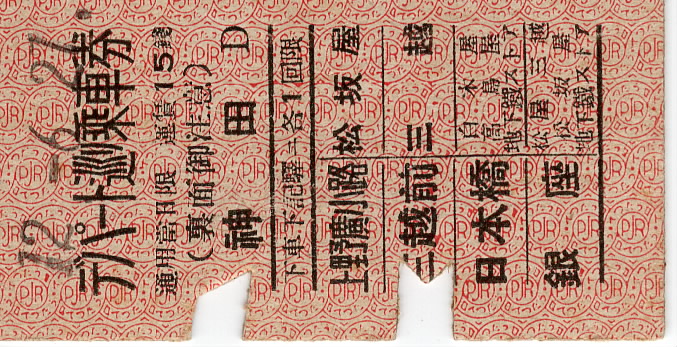 12.-6.27.
デパート巡乗車券
通用當日限 運賃15錢
(裏面御注意)
神田 D
下車下記驛ニ各1回限
上野廣小路 松坂屋
三越前 三越
日本橋 白木屋
高島屋
地下鐵ストア
銀座 松屋 三越
松坂屋
地下鐵ストア